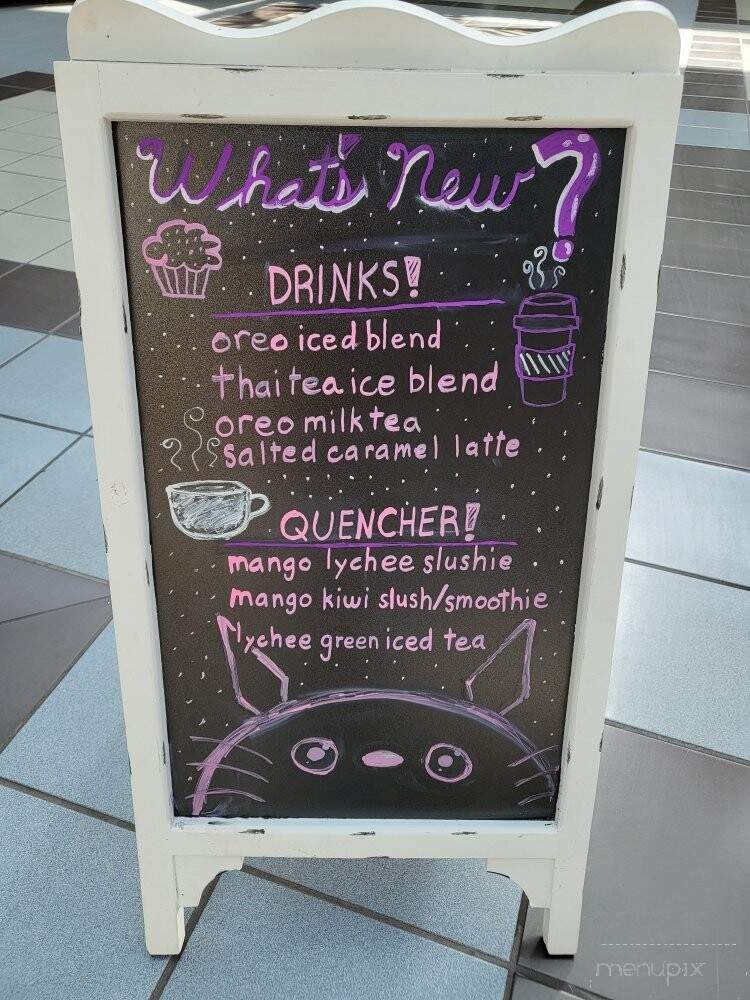 What's New?
DRINKS!
oreo iced blend
thai tea ice blend
oreo milk tea
salted caramel latte
QUENCHER!
mango lychee slushie
mango kiwi slush/smoothie
lychee green iced tea
menupix